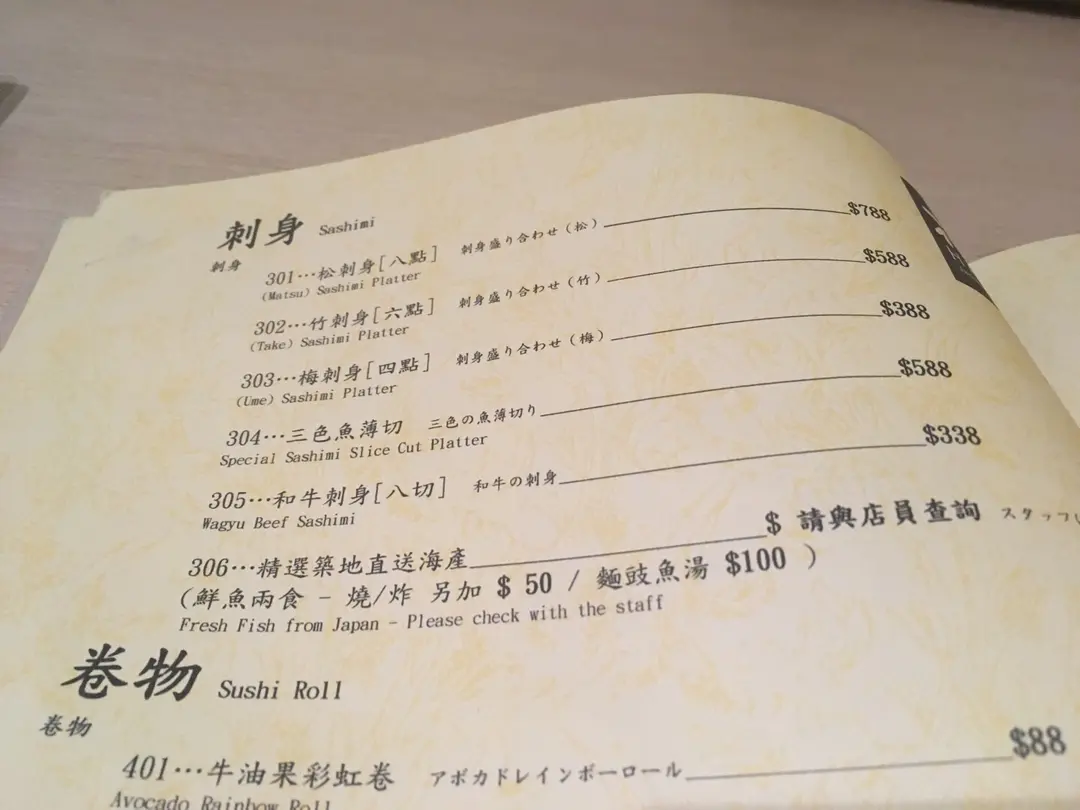 刺身 Sashimi
刺身
301…松刺身[八點] 刺身盛り合わせ(松) $788
(Matsu) Sashimi Platter
302…竹刺身[六點] 刺身盛り合わせ(竹) $588
(Take) Sashimi Platter
303…梅刺身[四點] 刺身盛り合わせ(梅) $388
(Ume) Sashimi Platter
304…三色魚薄切 三色の魚薄切り $588
Special Sashimi Slice Cut Platter
305…和牛刺身[八切] 和牛の刺身 $338
Wagyu Beef Sashimi
306…精選築地直送海產 $ 請與店員查詢 スタッフ
(鮮魚兩食 - 燒/炸 另加 $ 50 / 麵豉魚湯 $100 )
Fresh Fish from Japan - Please check with the staff
卷物 Sushi Roll
卷物
401…牛油果彩虹卷 アボカドレインボーロール $88
Avocado Rainbow Roll